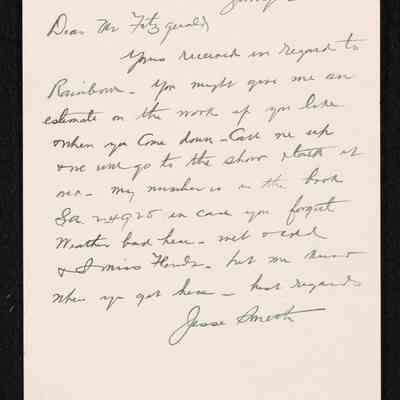 Dear Mr Fitzgerald
Yours received in regard to
Rainbow - you might give me an
estimate on the work if you like
when you come down - Call me up
& we will go to the show & talk it
over - my number is in the book
in case you forget
Weather bad here - wet & cold
& I miss Florida - let me know
when you get here - best regards
Jesse Smith